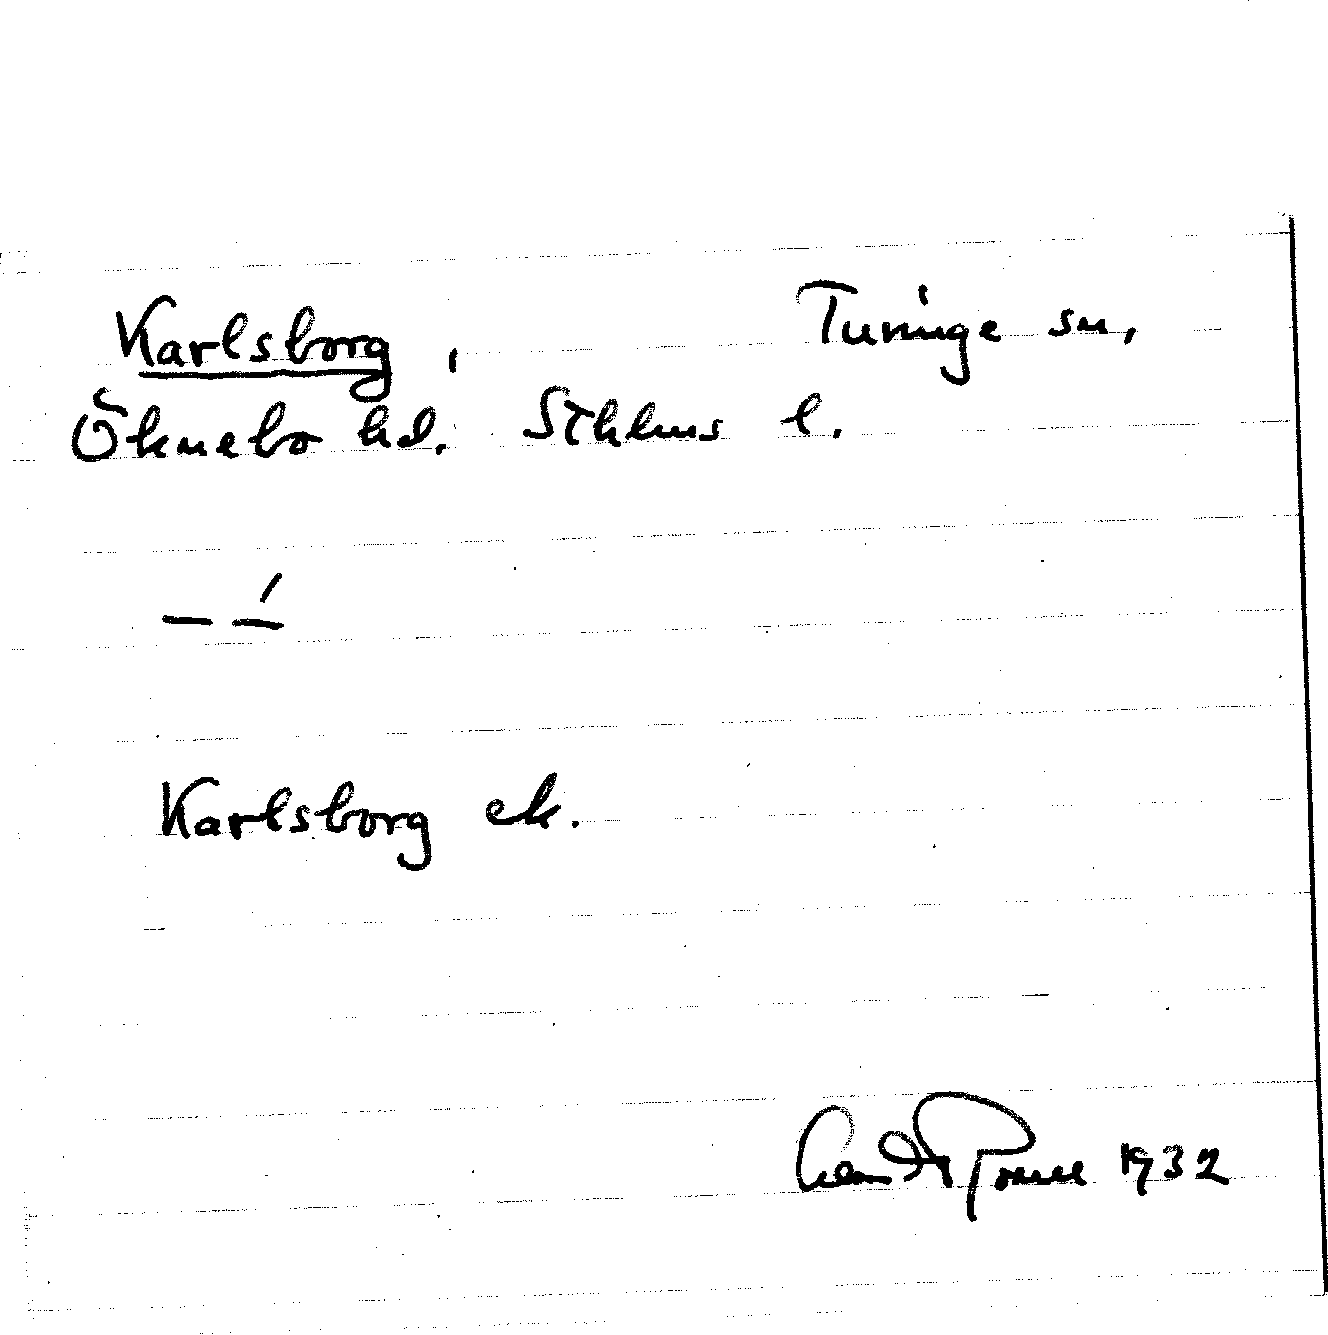 Karlsborg, Turinge sn,
Öknebo hd. Sthlms l.
— —́
Karlsborg ek.
1932